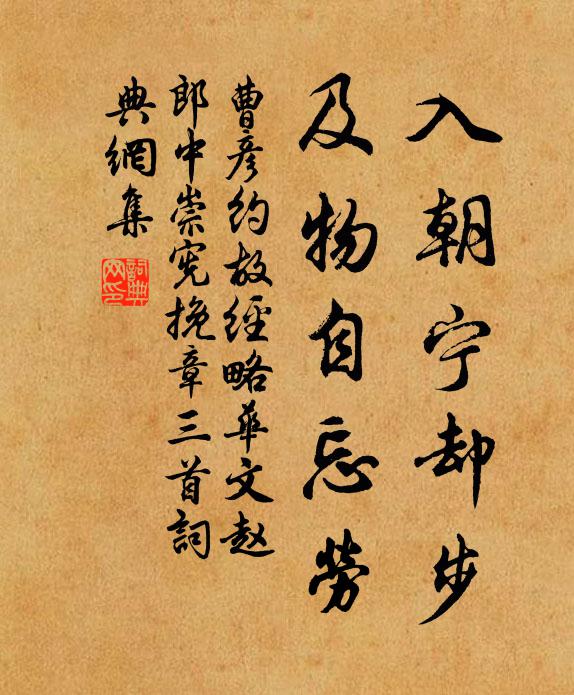 入朝宁却步
及物自忘勞
曹彦約故經略華文赵
郎中崇宪挽章三首詞
典網集
詞典網印